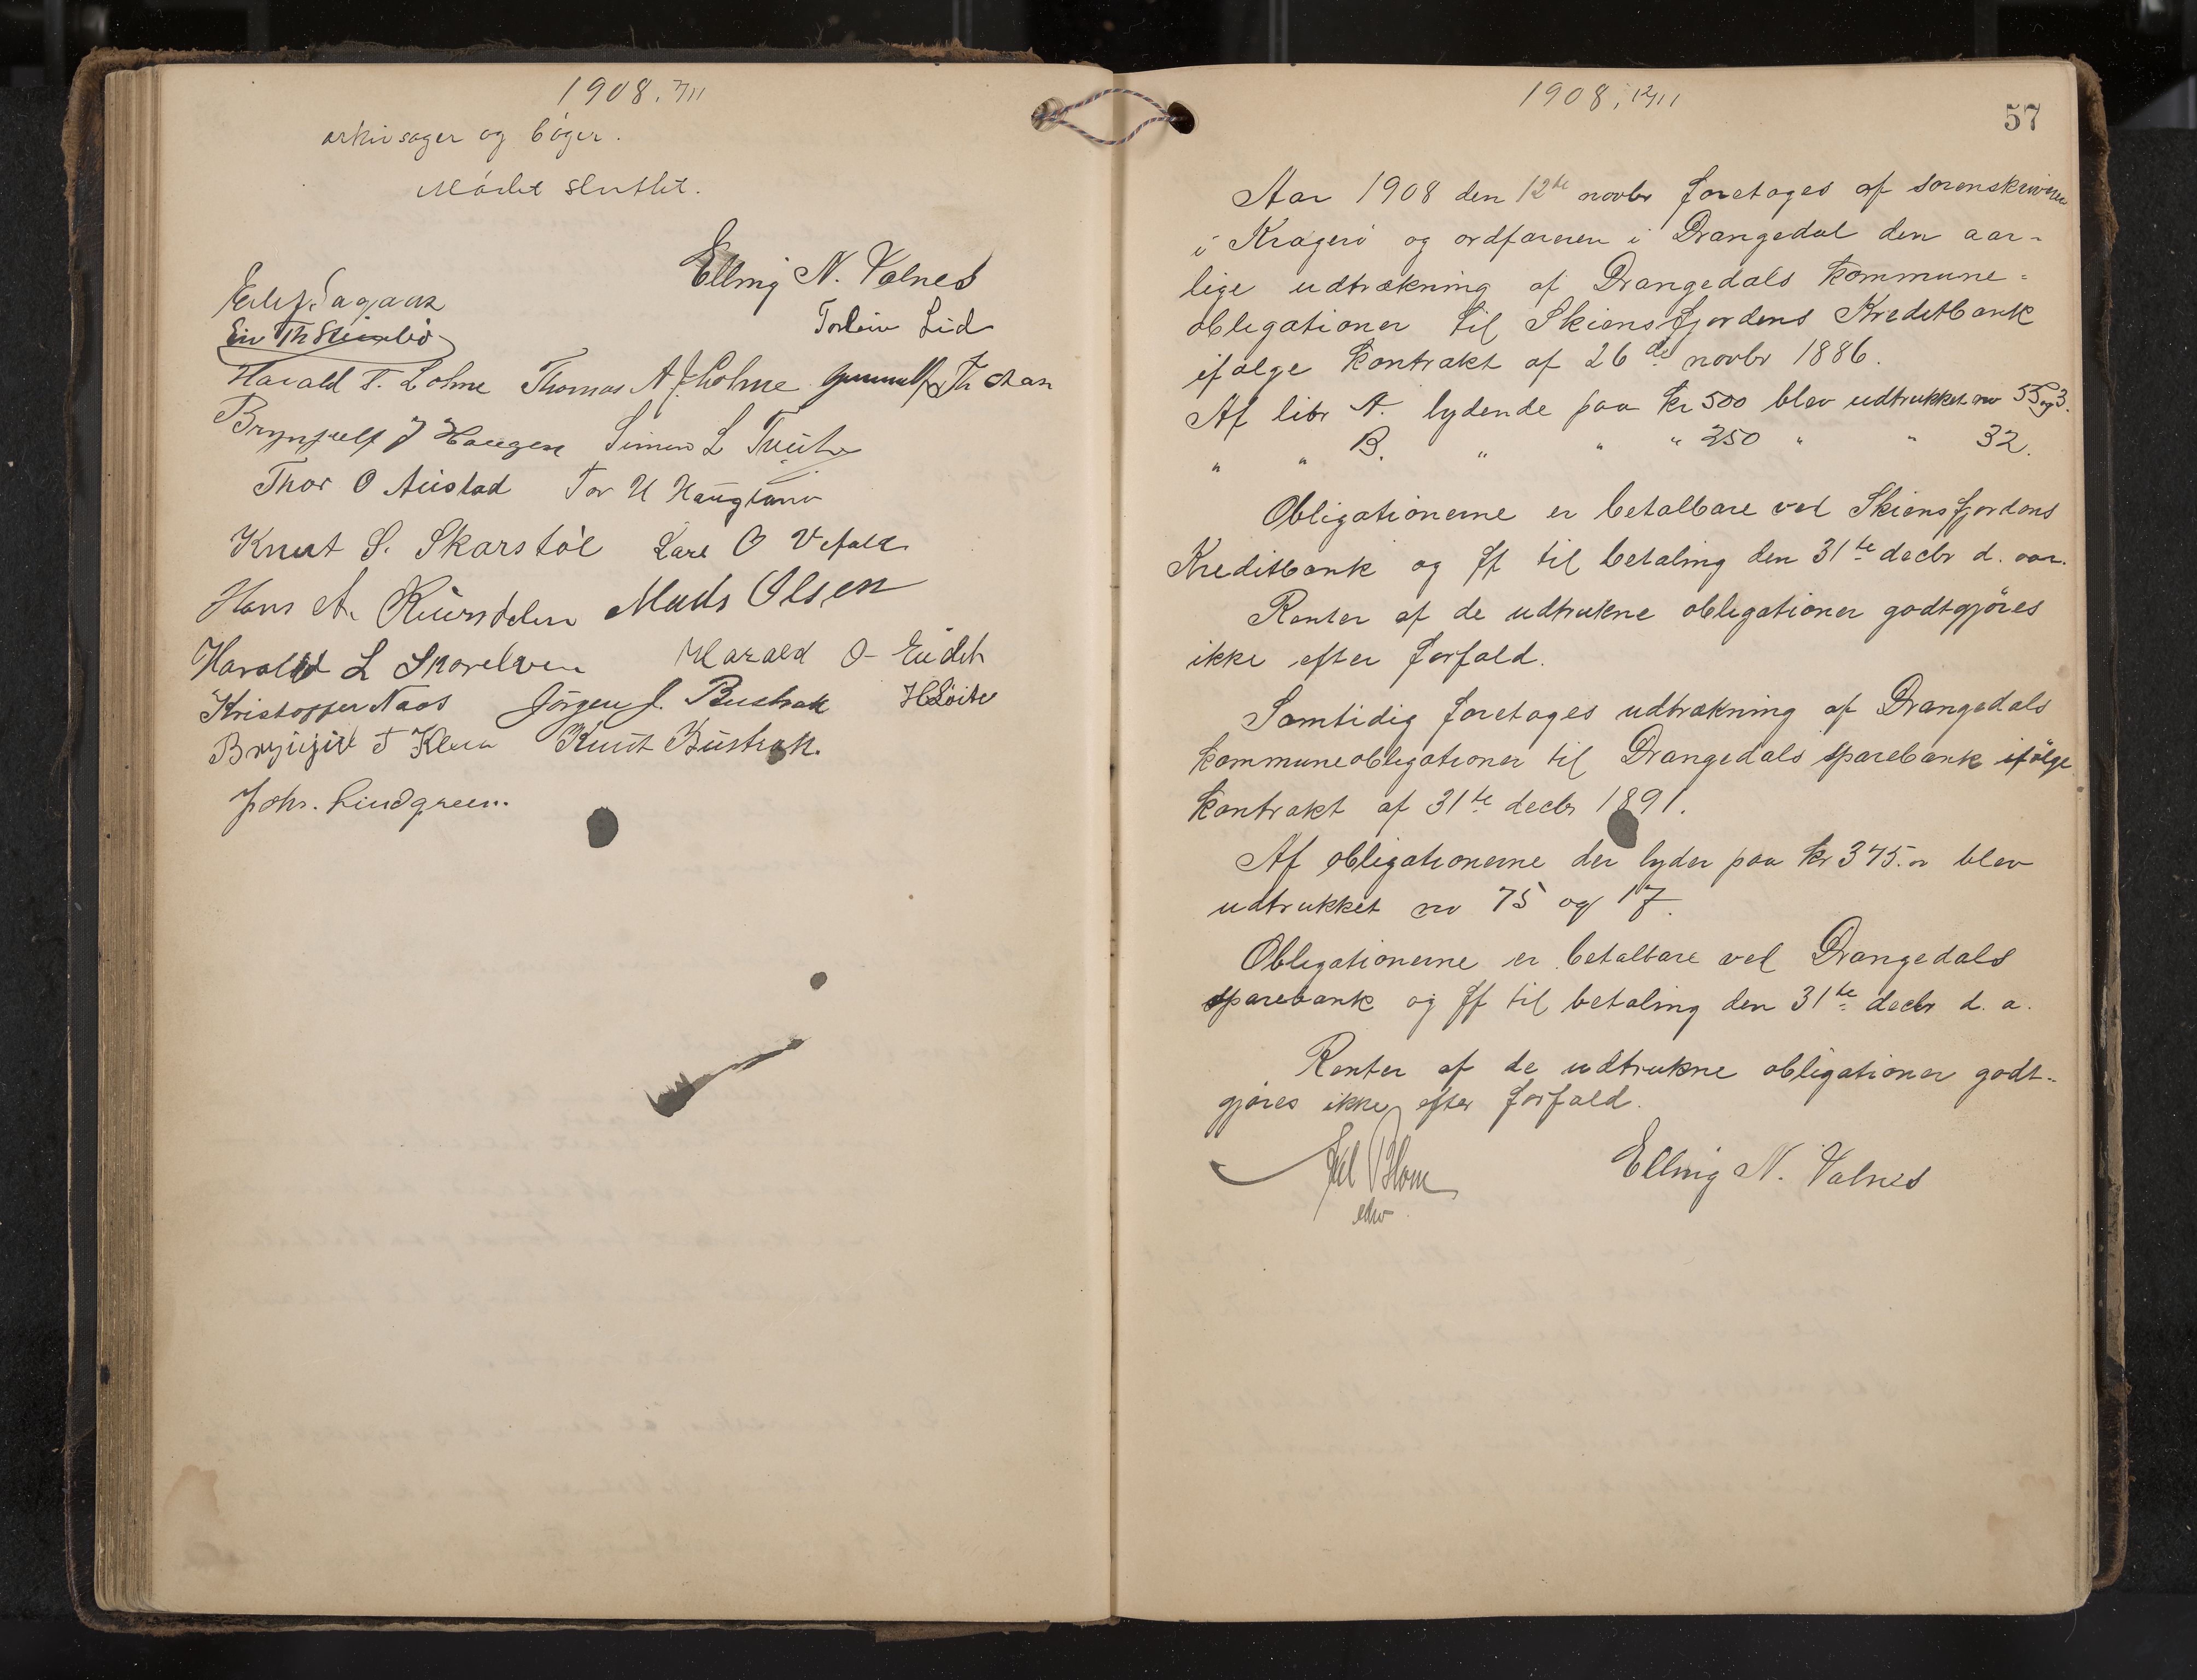 1908. 7/11
arkivsager og bøger.
Mødet sluttet.
Elling N. Valnes
Torleiv Lid
Harald T. Lohne Thomas A. Lohne
Brynjulf J Haugen Simen L Tveit
Thor O Austad Tor H Haugland
Knut S. Skarstøl Lars O Vefald
Hans A. Mads Olsen
Harald L Harald O Eidet
Kristoffer Naas Jørgen J. Bustrak
T Knut Bustrak.
Johs. Lindgreen.
1908, 12/11
57
Aar 1908 den 12te novbr foretages af sorenskriveren
i Kragerø og ordføreren i Drangedal den aar-
lige udtrækning af Drangedals kommune-
obligationer til Skiensfjordens Kreditbank
ifølge kontrakt af 26de novbr 1886.
Af litr A. lydende paa kr 500 blev udtrukket no 55 og 3.
" " B. " " " 250 " " 32.
Obligationerne er betalbare ved Skiensfjordens
Kreditbank og ff til betaling den 31te decbr d. aar.
Renter af de udtrukne obligationer godtgjøres
ikke efter forfald.
Samtidig foretages udtrækning af Drangedals
kommuneobligationer til Drangedals sparebank ifølge
kontrakt af 31te decbr 1891.
Af obligationerne der lyder paa kr 375.oo blev
udtrukket no 75 og 17.
Obligationerne er betalbare ved Drangedals
sparebank og ff til betaling den 31te decbr d. a.
Renter af de udtrukne obligationer godt-
gjøres ikke efter forfald.
Blom Elling N. Valnes